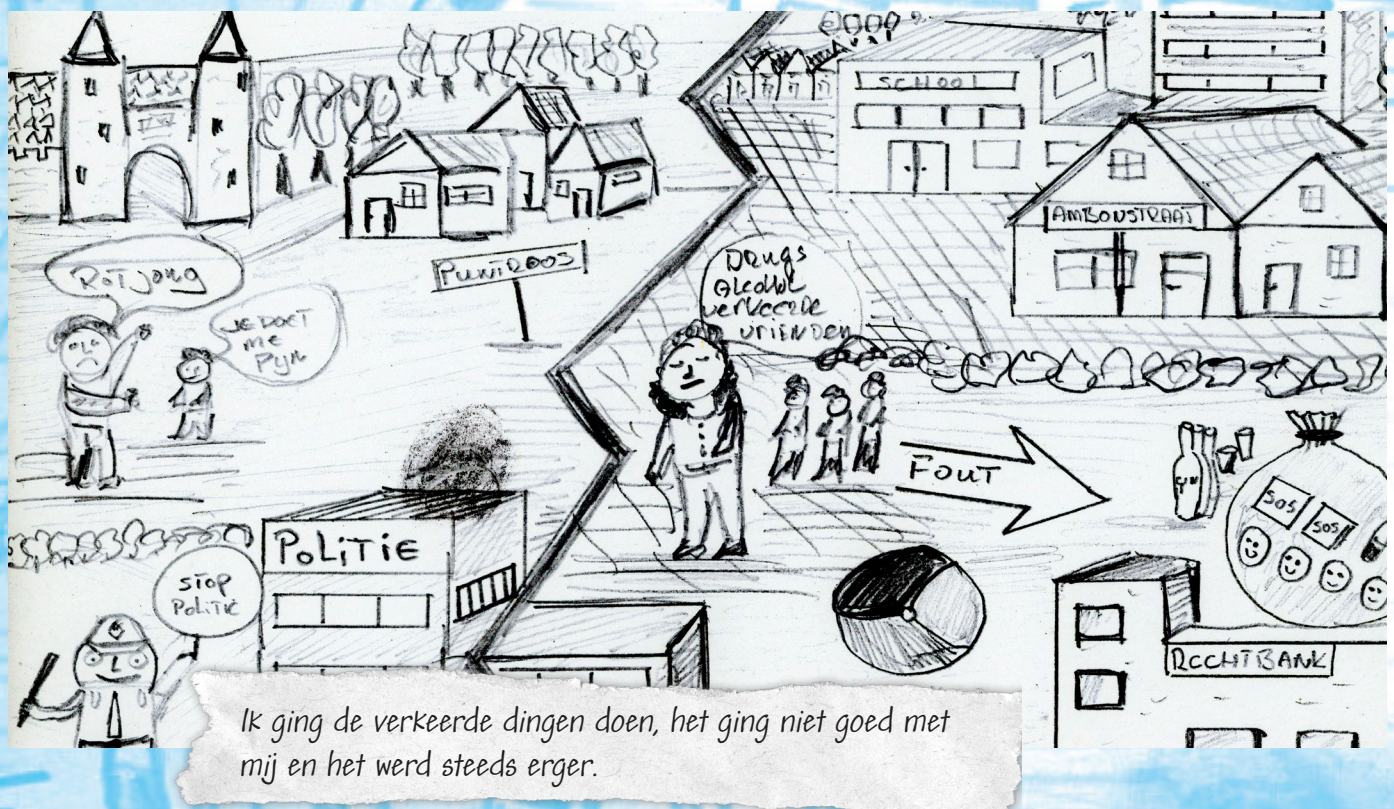 SCHOOL
AMBONSTRAAT
ROTJONG
PUNTROOS
JE DOET
ME
PIJN
DRUGS
ALCOHOL
VERKEERDE
VRIENDEN
FOUT
SOS
SOS
POLITIE
STOP
POLITIE
RECHTBANK
Ik ging de verkeerde dingen doen, het ging niet goed met
mij en het werd steeds erger.